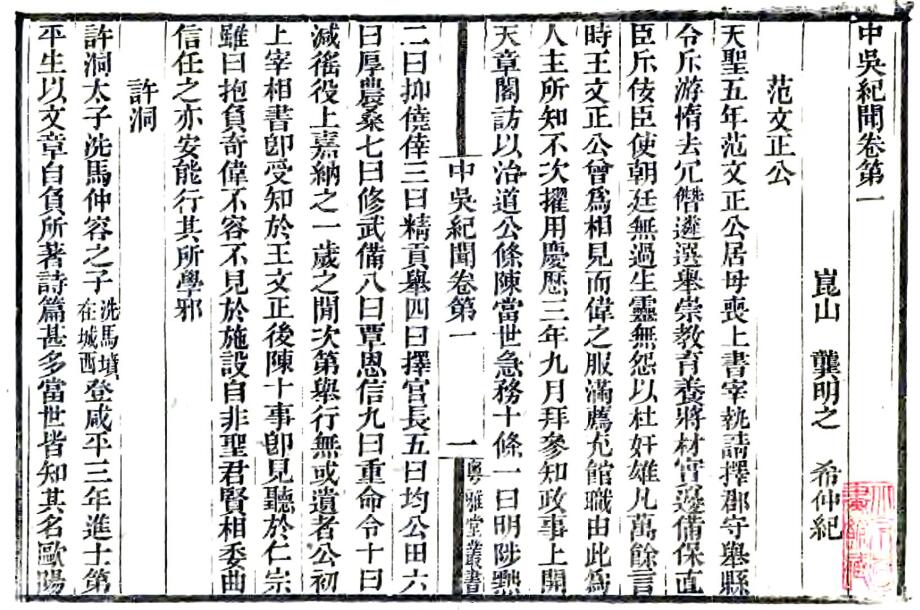 中吳紀聞卷第一
崑山 龔明之 希仲紀
范文正公
天聖五年范文正公居母喪上書宰執請擇郡守舉縣
令斥游惰去冗僭遴選舉崇教育養將材實邊備保直
臣斥佞臣使朝廷無過生靈無怨以杜奸雄凡萬餘言
時王文正公曾爲相見而偉之服滿薦充館職由此爲
人主所知不次擢用慶歷三年九月拜參知政事上開
天章閣訪以治道公條陳當世急務十條一曰明陟黜
中吳紀聞卷第一 一 粤雅堂叢書
二曰抑僥倖三曰精貢舉四曰擇官長五曰均公田六
曰厚農桑七曰修武備八曰覃恩信九曰重命令十曰
減徭役上嘉納之一歲之閒次第舉行無或遺者公初
上宰相書卽受知於王文正後陳十事卽見聽於仁宗
雖曰抱負奇偉不容不見於施設自非聖君賢相委曲
信任之亦安能行其所學邪
許洞
許洞太子洗馬仲容之子洗馬墳在城西登咸平三年進士第
平生以文章自負所著詩篇甚多當世皆知其名歐陽